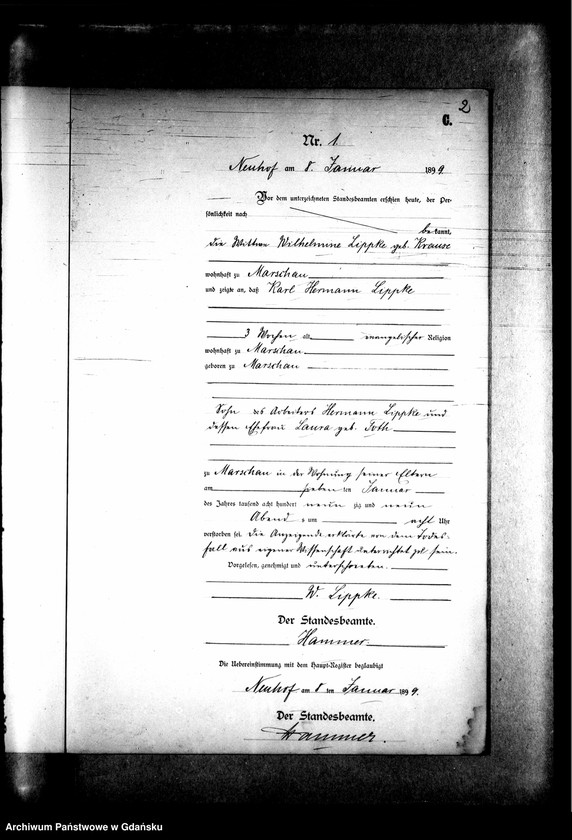 2
C.
Nr. 1
Neuhof am 8. Januar 1899
Vor dem unterzeichneten Standesbeamten erschien heute, der Per-
sönlichkeit nach
bekannt,
die Wittwe Wilhelmine Lippke geb. Krause
wohnhaft zu Marschau
und zeigte an, daß Karl Hermann Lippke
3 Wochen alt evangelischer Religion
wohnhaft zu Marschau
geboren zu Marschau
Sohn des Arbeiters Hermann Lippke und
dessen Ehefrau Laura geb. Toth
zu Marschau in der Wohnung seiner Eltern
am sieben ten Januar
des Jahres tausend acht hundert neun zig und neun
Abend s um acht Uhr
verstorben sei. Die Anzeigende erklärte von dem Todes-
fall aus eigener Wissenschaft unterrichtet zu sein.
Vorgelesen, genehmigt und unterschrieben.
W. Lippke.
Der Standesbeamte.
Hammer.
Die Uebereinstimmung mit dem Haupt-Register beglaubigt
Neuhof am 8 ten Januar 1899.
Der Standesbeamte.
Hammer.
Archiwum Państwowe w Gdańsku